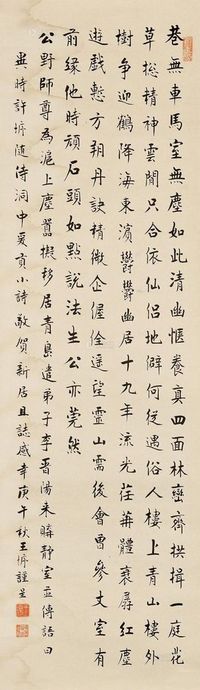 巷無車馬室無塵如此清幽愜養真四面林巒齊拱揖一庭花
草総精神雲間只合依仙侶地僻何從遇俗人樓上青山樓外
樹爭迎鶴降海東濱鬱鬱幽居十九年流光荏苒體衰孱紅塵
遊戲慙方朔丹訣精微企偓佺遥望靈山需後會曾參丈室有
前緣他時頑石頭如點說法生公亦莞然
公野師尊為滬上塵囂擬移居青島遣弟子李晋陽来購静室並傳語曰
異時許垿随侍洞中爰小詩敬賀新居且誌感幸庚午秋王垿謹呈